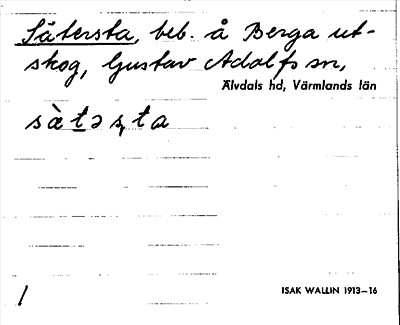 Sätersta, beb. å Berga ut-
skog, Gustav Adolfs sn,
Älvdals hd, Värmlands län
sὰtəsta
ISAK WALLIN 1913–16
1